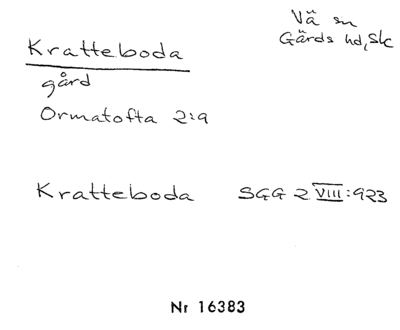 Vä sn
Gärds hd, Sk
Kratteboda
gård
Ormatofta 2:9
Kratteboda SGG 2 VIII:923
Nr 16383